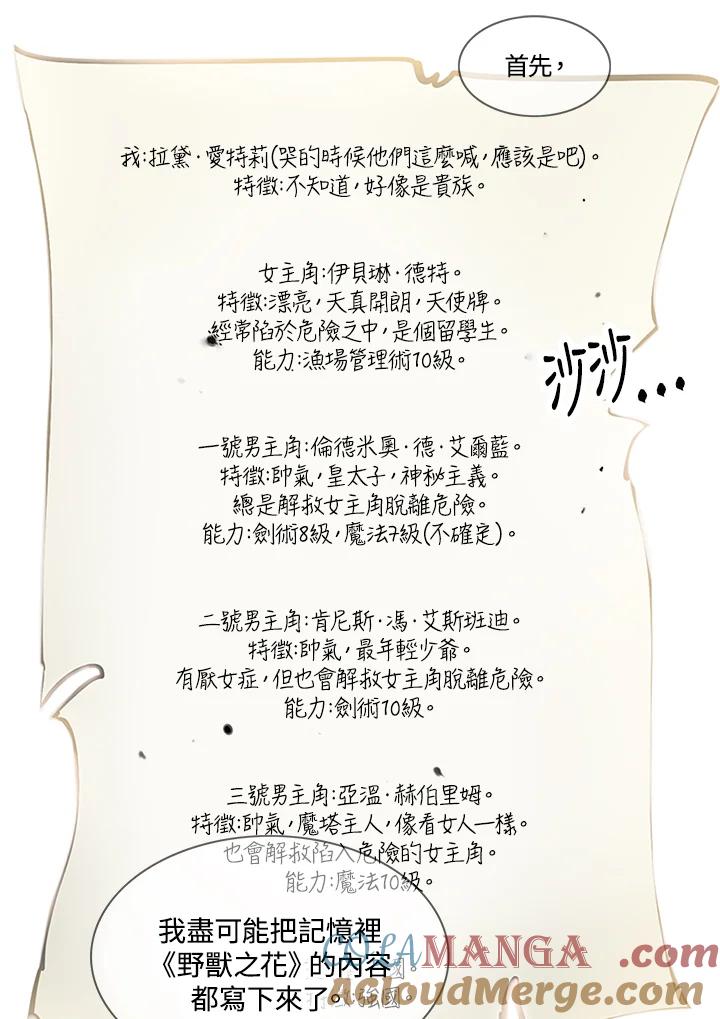 首先，
我:拉黛·愛特莉(哭的時候他們這麼喊,應該是吧)。
特徵:不知道,好像是貴族。
女主角:伊貝琳·德特。
特徵:漂亮,天真開朗,天使牌。
經常陷於危險之中,是個留學生。
能力:漁場管理術10級。
沙沙...
一號男主角:倫德米奧·德·艾爾藍。
特徵:帥氣,皇太子,神秘主義。
總是解救女主角脫離危險。
能力:劍術8級,魔法7級(不確定)。
二號男主角:肯尼斯·馮·艾斯班迪。
特徵:帥氣,最年輕少爺。
有厭女症,但也會解救女主角脫離危險。
能力:劍術10級。
三號男主角:亞溫·赫伯里姆。
特徵:帥氣,魔塔主人,像看女人一樣。
也會解救陷入危險的女主角。
能力:魔法10級。
我盡可能把記憶裡
《野獸之花》的內容
都寫下來了。
國。
:強國。
COLAMANGA.com
AcloudMerge.com